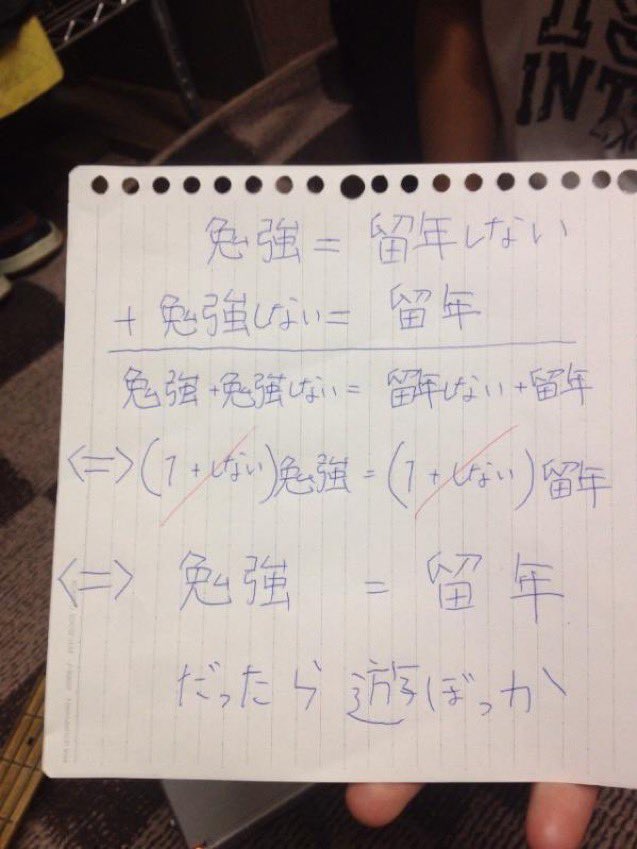 勉強 = 留年しない
+ 勉強しない = 留年
勉強 + 勉強しない = 留年しない + 留年
<=> (1 + しない)勉強 = (1 + しない)留年
<=> 勉強 = 留年
だったら遊ぼっか
INT